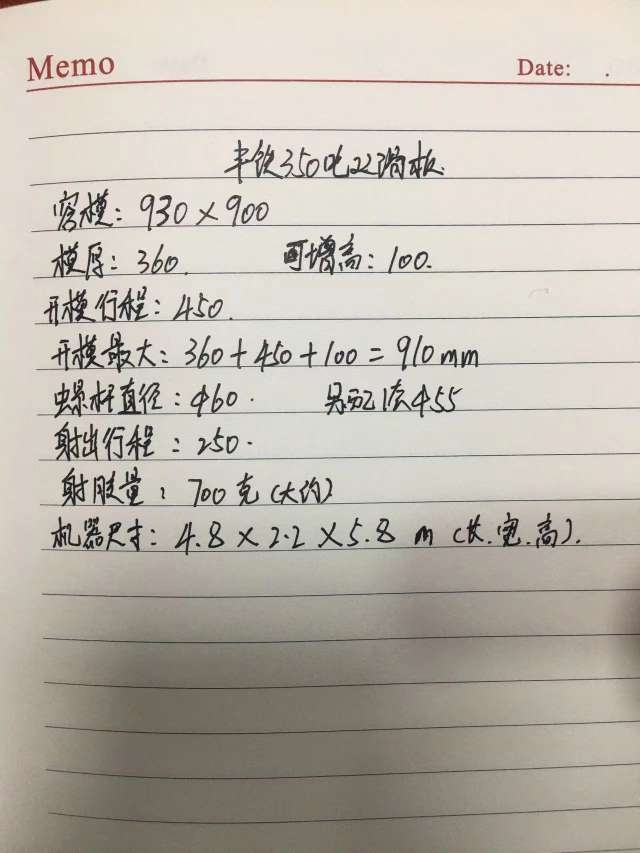 Memo
Date: .
丰铁350吨双滑板.
容模: 930×900
模厚: 360. 可增高: 100.
开模行程: 450.
开模最大: 360+450+100=910mm
螺杆直径: Φ60. 另配1套Φ55
射出行程: 250.
射胶量: 700克(大约)
机器尺寸: 4.8×2.2×5.8m(长.宽.高).